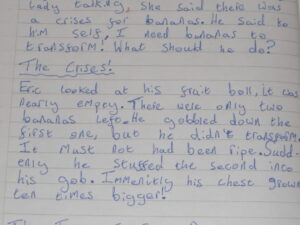 lady talking, she said there was
a crises for bananas. He said to
him self, I need bananas to
transform! What should he do?
The Crises!
Eric looked at his fruit boll, it was
nearly empey. There were only two
bananas left. He gobbled down the
first one, but he didn't transform.
It must not had been ripe. Sudd-
enly he stuffed the second into
his gob. Immenitly his chest grown
ten times bigger!